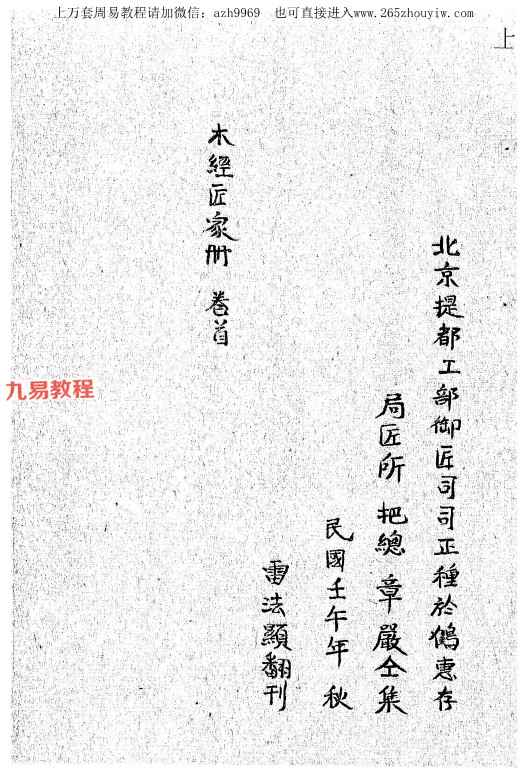 上万套周易教程请加微信：azh9969 也可直接进入www.265zhouyiw.com
上
北京提都工部御匠司司正種於鶴惠存
局匠所 把總 章嚴仝集
民國壬午年 秋
雷法顯翻刊
木經匠家册 卷首
九易教程